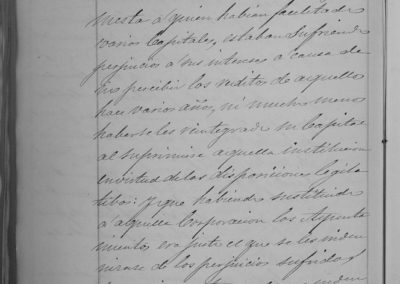 mesta a quien habian facilitado
varios Capitales, estaban sufriendo
perjuicios a sus intereses a causa de
no percibir los reditos de aquellos
hace varios años, ni mucho menos
haberseles reintegrado su Capital
al suprimirse aquella institucion
en virtud de las disposiciones legisla
tibas: y que habiendo sustituido
a aquella Corporacion los Ayunta
mientos era justo el que se les indem
nizase de los perjuicios sufridos y